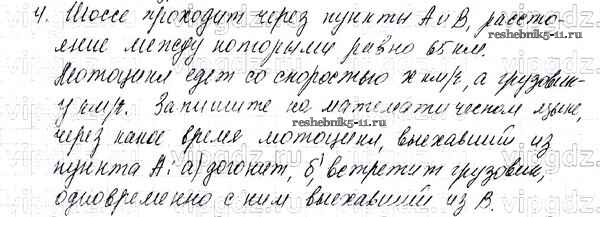 4. Шоссе проходит через пункты А и В, рассто-
reshebnik5-11.ru
яние между которыми равно 65 км.
Мотоцикл едет со скоростью x км/ч, а грузовик-
y км/ч. Запишите на математическом языке,
reshebnik5-11.ru
через какое время мотоцикл, выехавший из
пункта А: а) догонит, б) встретит грузовик,
одновременно с ним выехавший из В.